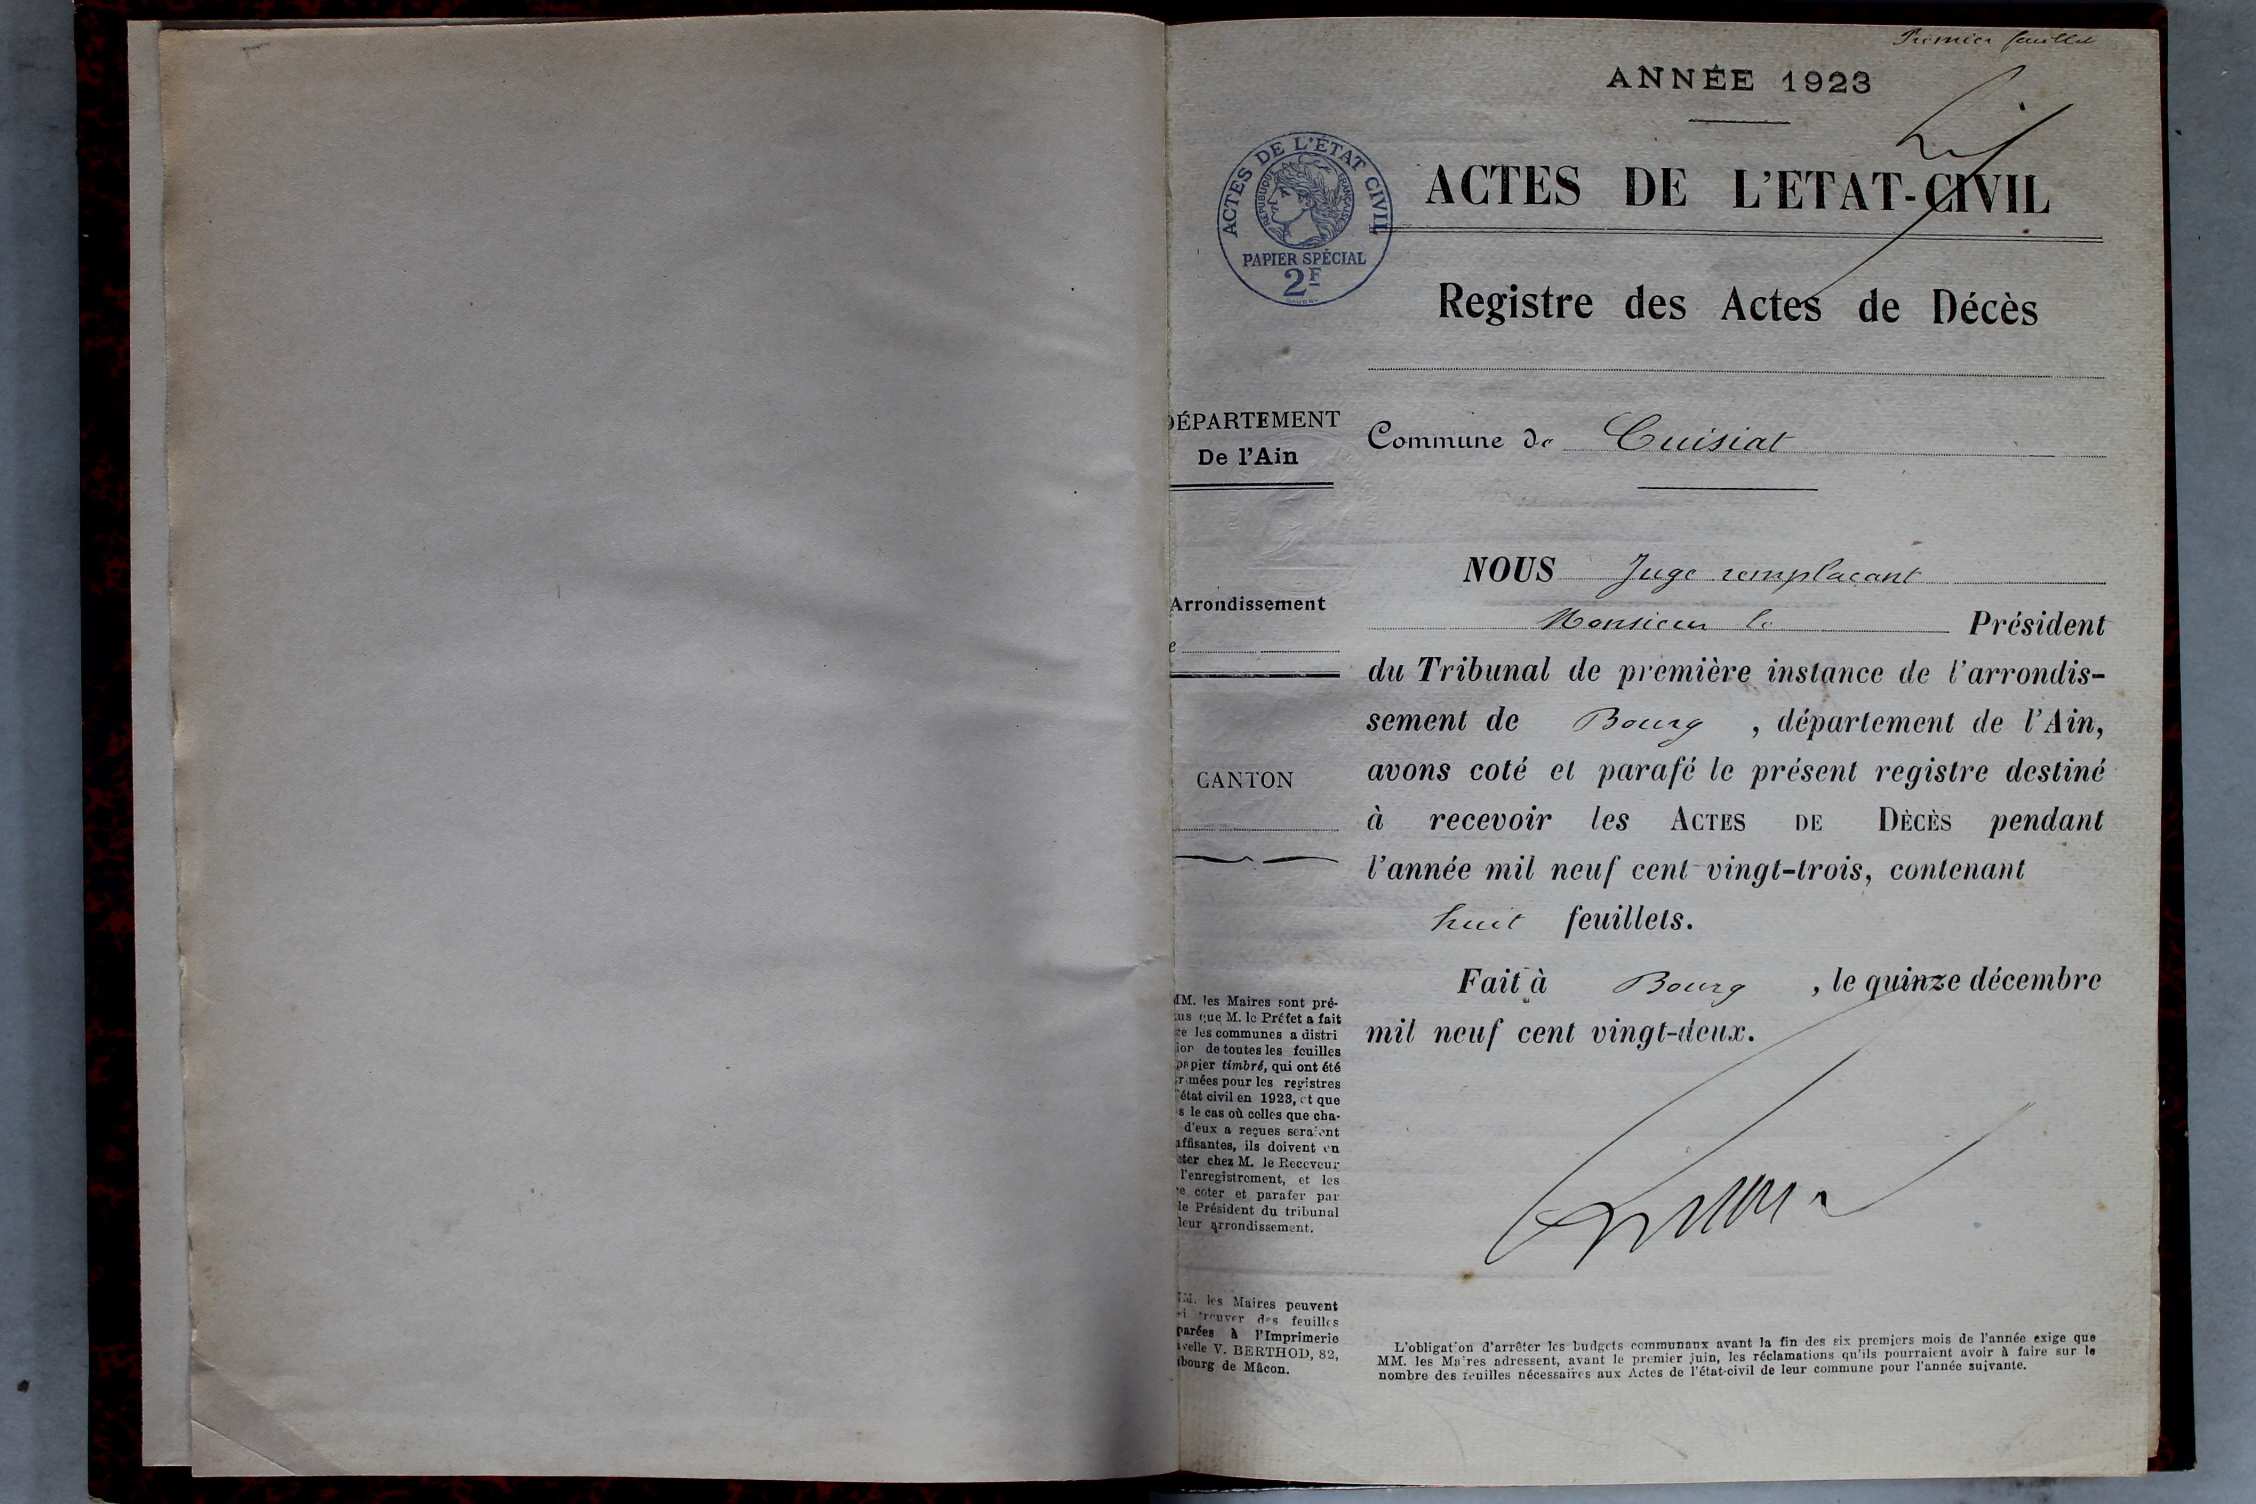 Premier feuillet
ANNÉE 1923
ACTES DE L'ÉTAT CIVIL
RÉPUBLIQUE FRANÇAISE
PAPIER SPÉCIAL
2F
ACTES DE L'ETAT-CIVIL
Registre des Actes de Décès
DÉPARTEMENT
De l'Ain
Commune de Cuisiat
Arrondissement
CANTON
NOUS Juge remplaçant
Monsieur le Président
du Tribunal de première instance de l'arrondis-
sement de Bourg, département de l'Ain,
avons coté et parafé le présent registre destiné
à recevoir les ACTES DE DÈCÈS pendant
l'année mil neuf cent vingt-trois, contenant
huit feuillets.
Fait à Bourg, le quinze décembre
mil neuf cent vingt-deux.
MM. les Maires sont pré-
que M. le Préfet a fait
les communes a distri
de toutes les feuilles
papier timbré, qui ont été
mées pour les registres
état civil en 1923, et que
s le cas où celles que cha-
d'eux a reçues seraient
ffisantes, ils doivent en
ter chez M. le Receveur
l'enregistrement, et les
coter et parafer par
le Président du tribunal
leur arrondissement.
MM. les Maires peuvent
trouver des feuilles
parées à l'Imprimerie
velle V. BERTHOD, 82,
bourg de Mâcon.
L'obligation d'arrêter les budgets communaux avant la fin des six premiers mois de l'année exige que
MM. les Maires adressent, avant le premier juin, les réclamations qu'ils pourraient avoir à faire sur le
nombre des feuilles nécessaires aux Actes de l'état-civil de leur commune pour l'année suivante.